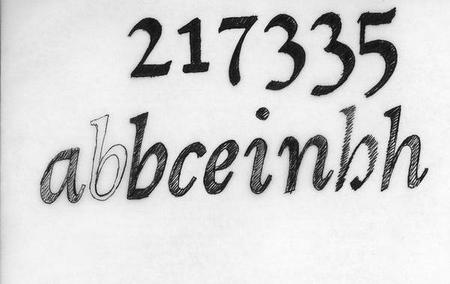 217335
abbceinhh